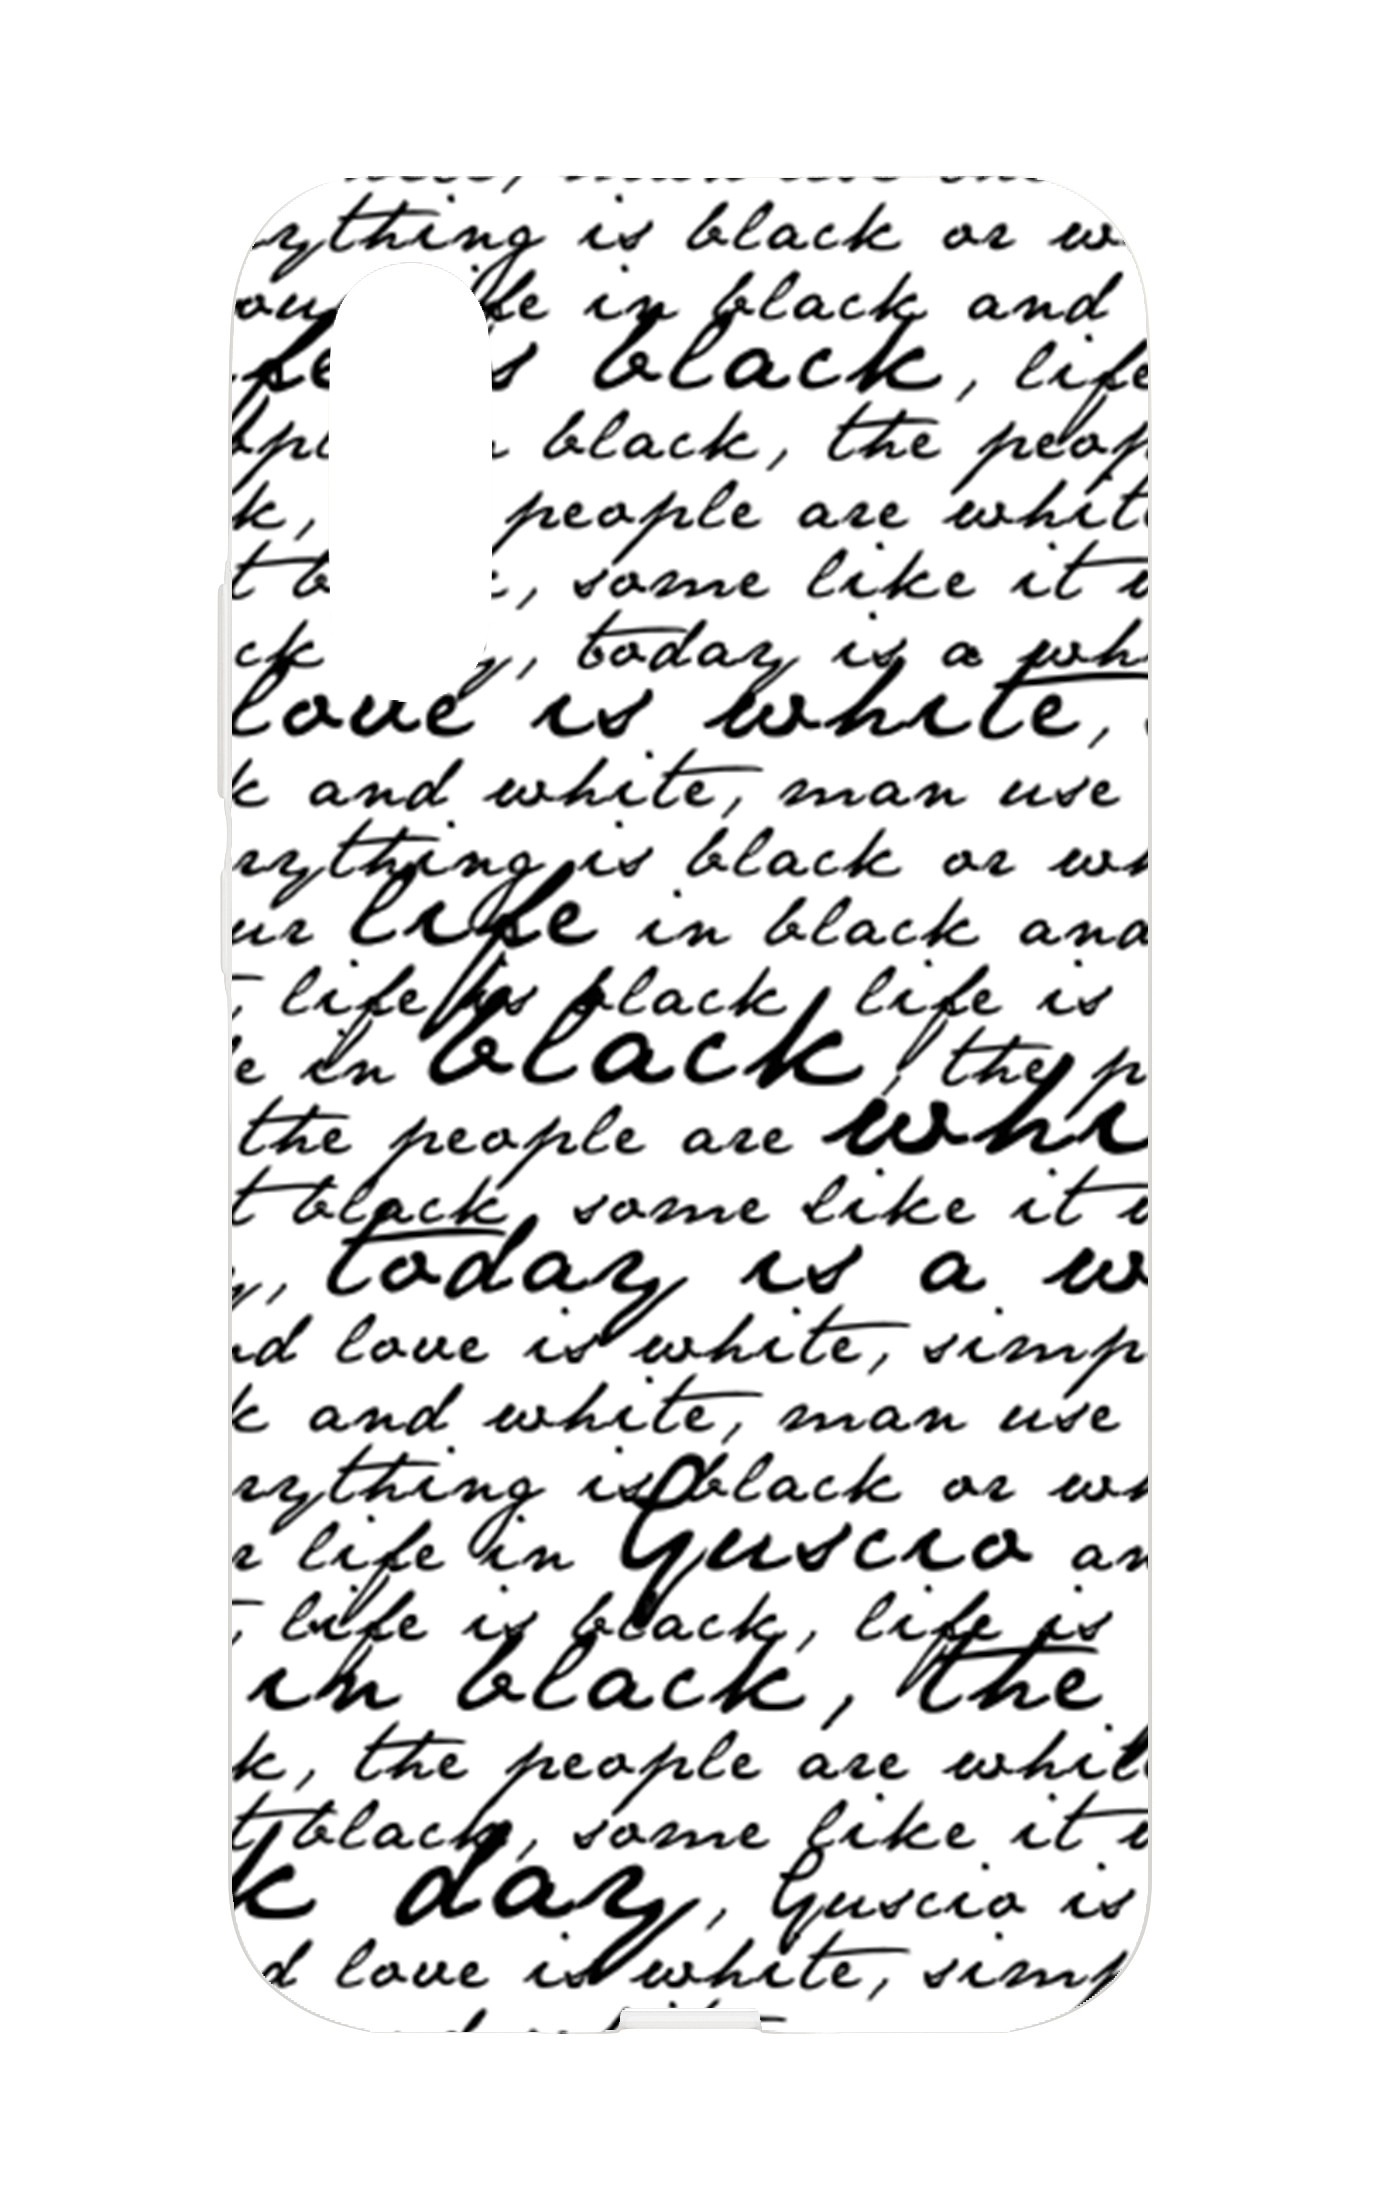 rything is black or w
ou fe in black and
fe s black, life
ppi black, the peop
k, people are whit
t b , some like it w
ck y, today is a whi
love is white,
k and white, man use
rything is black or wh
ur life in black and
, life is black life is
e in black, the p
the people are whi
t black, some like it w
y, today is a w
nd love is white, simp
k and white, man use
rything is black or wh
r life in Guscio an
, life is black, life is
in black, the
k, the people are whit
t black, some like it w
k day, Guscio is
d love is white, simp